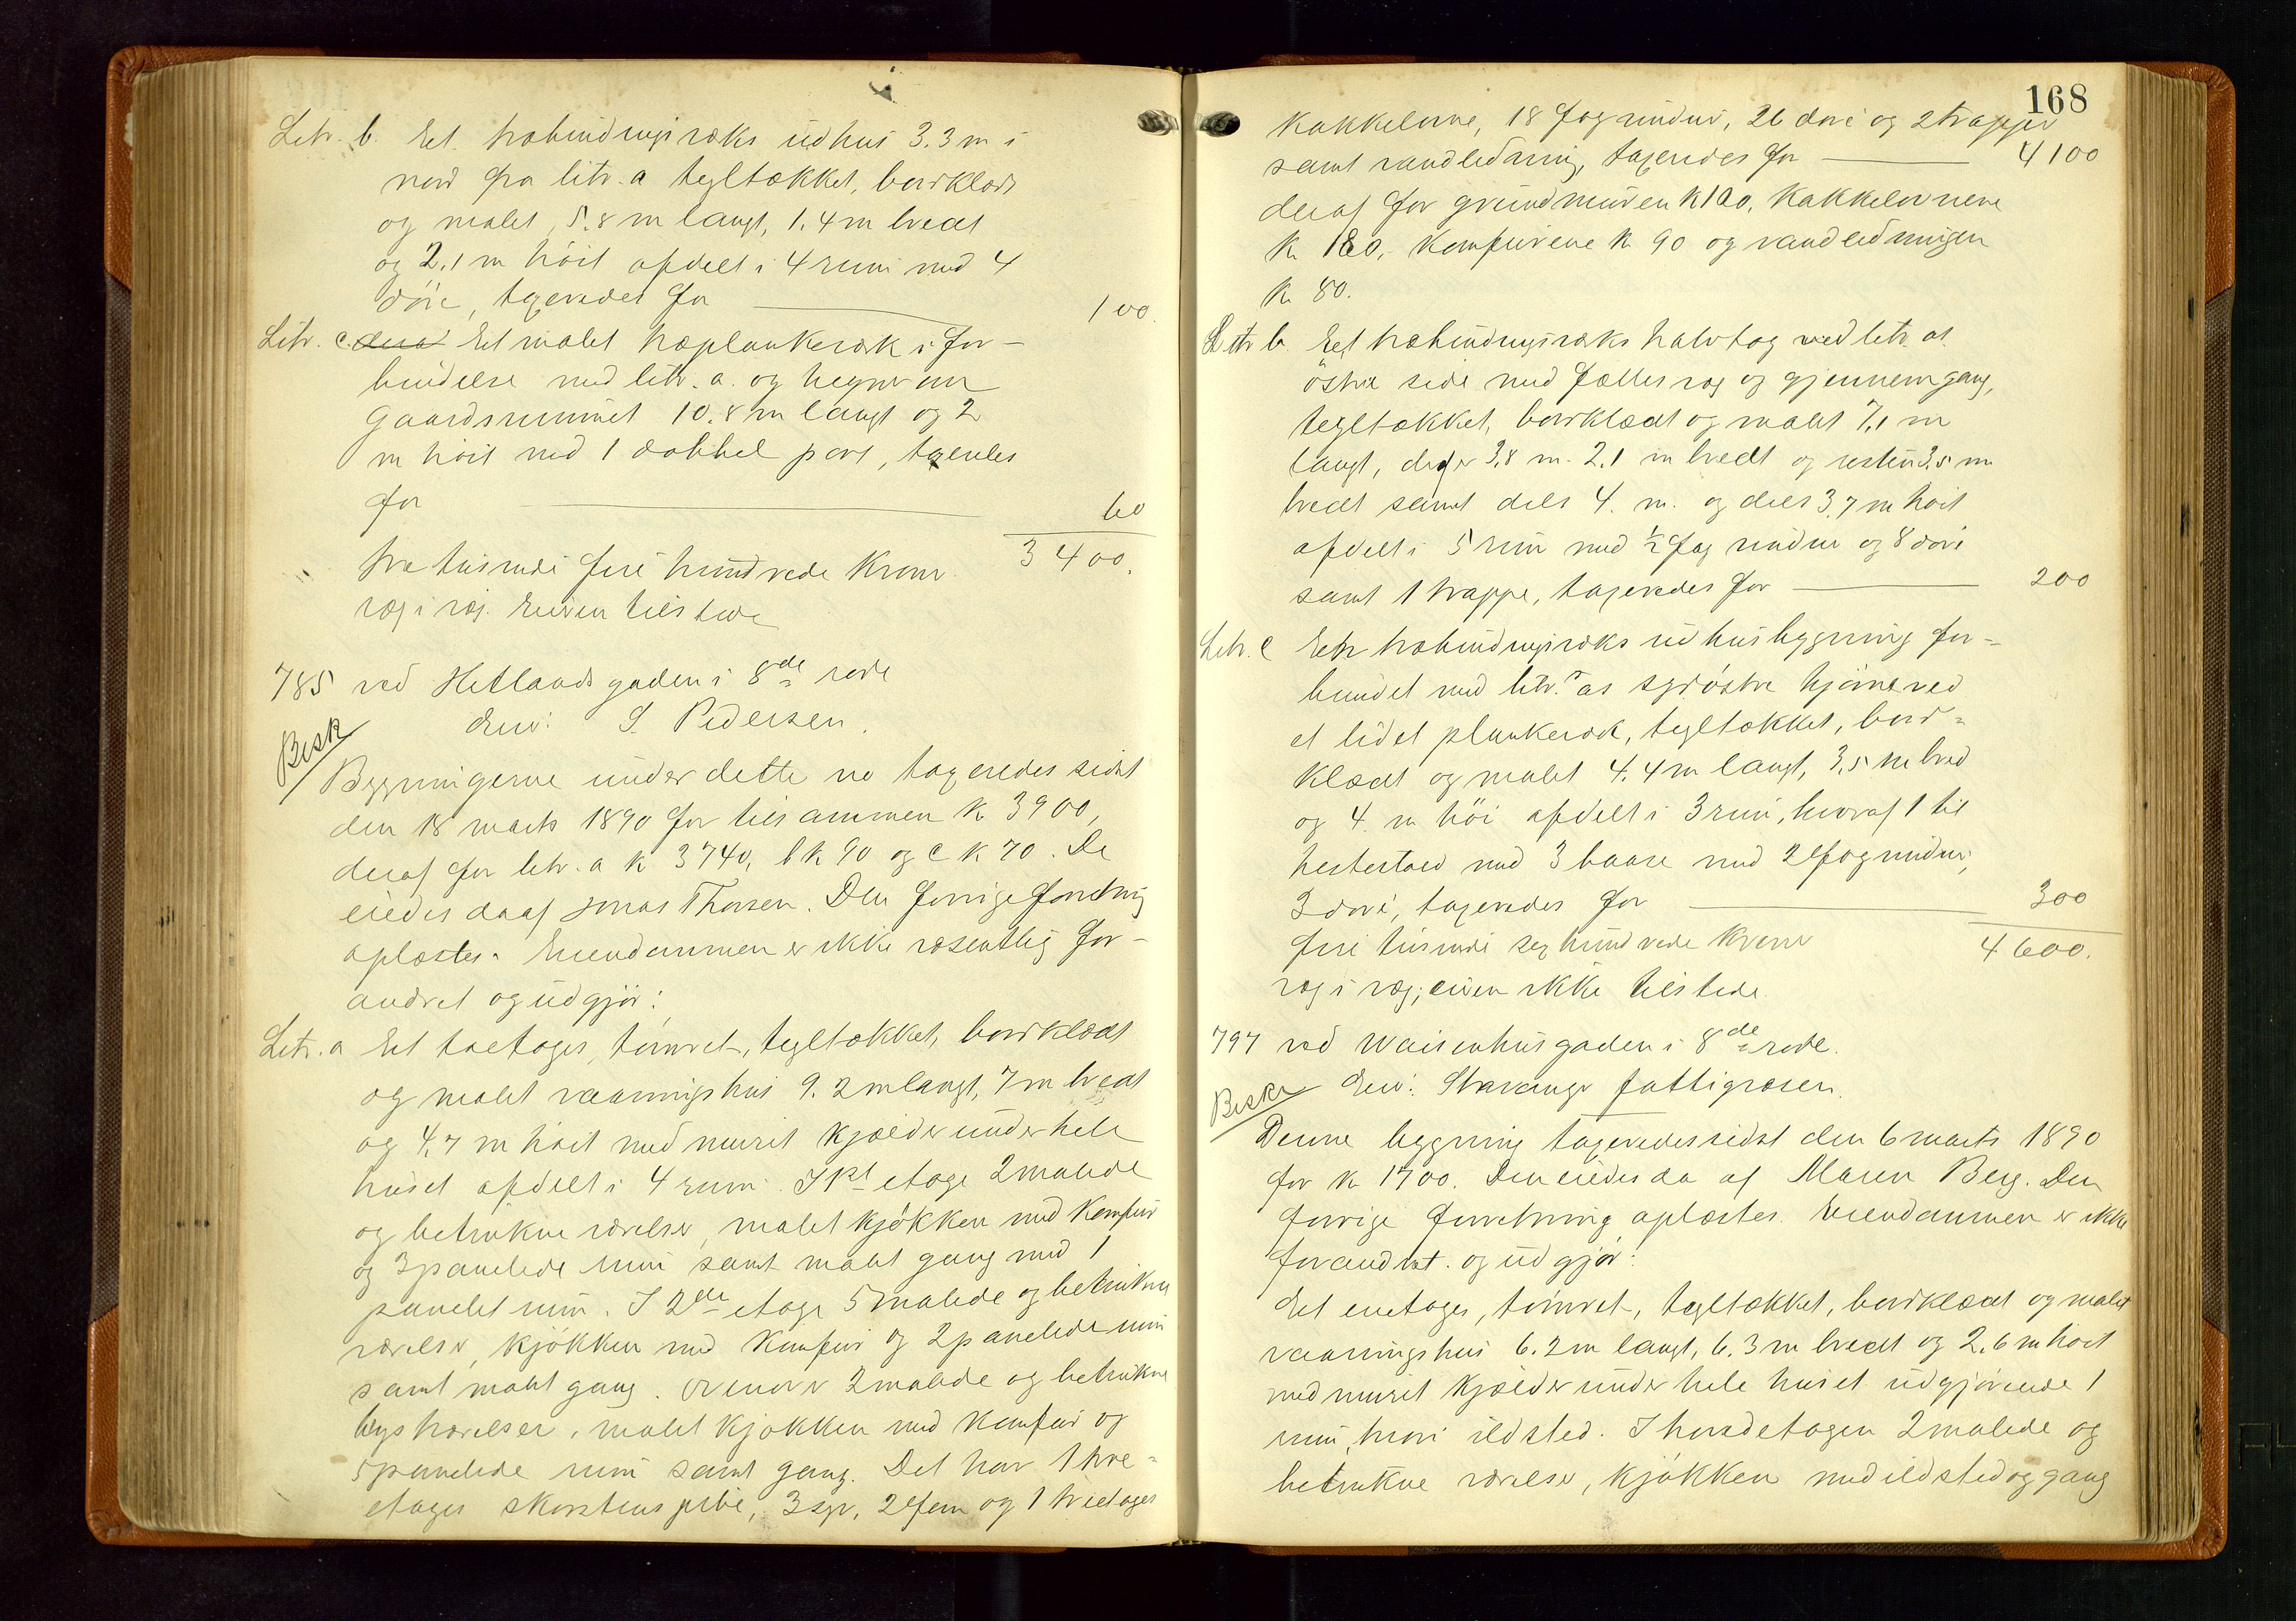 Litr. b. Et træbindingsværks udhus 3.3 m i
nord fra litr. a tegltækket, bordklædt
og malet, 5.8 m langt, 1.4 m bredt
og 2.1 m höit afdelt i 4 rum med 4
döre, taxeredes for 100.
Litr. c. Et malet træplankeværk i for-
bindelse med litr. a. og hegner om
Gaardsrummet 10.8 m langt og 2
m höit med 1 dobbel port, taxeredes
for 60
tre tusinde fire hundrede Kroner 3400.
væg i væg. Eieren tilstede
785 ved Hetlandsgaden i 8de rode
Eier: S. Pedersen.
Besk
Bygningerne under dette no taxeredes sidst
den 18 marts 1890 for tilsammen k 3900,
deraf for litr. a k 3740, b k 90 og c k 70. De
eiedes da af Jonas Thorsen. Den forrige forretning
oplæstes. Eiendommen er ikke væsentlig for-
andret og udgjör:
Litr. a Et toetages, tömret, tegltækket, bordklædt
og malet vaaningshus 9.2 m langt, 7 m bredt
og 4,7 m höit med muret kjælder under hele
huset afdelt i 4 rum. I 1ste etage 2 malede
og betrukne værelser, malet kjökken med Komfur
og 3 panelede rum samt malet gang med 1
panelet rum. I 2den etage 5 malede og betrukne
værelser, kjökken med Komfur og 2 panelede rum
samt malet gang. Ovenover 2 malede og betrukne
kvistværelser, malet kjökken med Komfur og
5 panelede rum samt gang. Det har 1 tre-
etages skorstenspibe, 3 syv, 2 fem og 1 treetages
168
Kakkelovne, 18 fag vinduer, 26 döre og 2 trapper
samt vandledning, taxeredes for 4100
deraf for grundmuren k 100, Kakkelovnene
k 180, Komfurene k 90 og vandledningen
k 80.
Litr b. Et træbindingsværks halvtag ved litr. as
östre side med fælles væg og gjennemgang,
tegltækket, bordklædt og malet 7,1 m
langt, deraf er 3,8 m. 2,1 m bredt og resten 3,5 m
bredt samt dels 4. m. og dels 3,7 m höit
afdelt i 5 rum med ½ fag vindue og 8 döre
samt 1 trappe, taxeredes for 200
Litr. c En træbindingsværks udhusbygning for-
bundet med litr. as sydöstre hjörne ved
et lidet plankeværk, tegltækket, bord-
klædt og malet 4.4 m langt, 3,5 m bred
og 4 m höi afdelt i 3 rum, hvoraf 1 til
hestestald med 3 baase med 2 fag vinduer,
3 döre, taxeredes for 300
fire tusinde sex hundrede Kroner 4600.
væg i væg; eieren ikke tilstede.
797 ved Waisenhusgaden i 8de rode.
Eier: Stavanger fattigvæsen.
Besk
Denne bygning taxeredes sidst den 6 marts 1890
for k 1700. Den eiedes da af Maren Berg. Den
forrige forretning oplæstes. Eiendommen er ikke
forandret. og udgjör:
Et enetages, tömret, tegltækket, bordklædt og malet
vaaningshus 6.2 m langt, 6.3 m bredt og 2.6 m höit
med muret kjælder under hele huset udgjörende 1
rum, hvori ildsted. I hovedetagen 2 malede og
betrukne værelser, kjökken med ildsted og gang